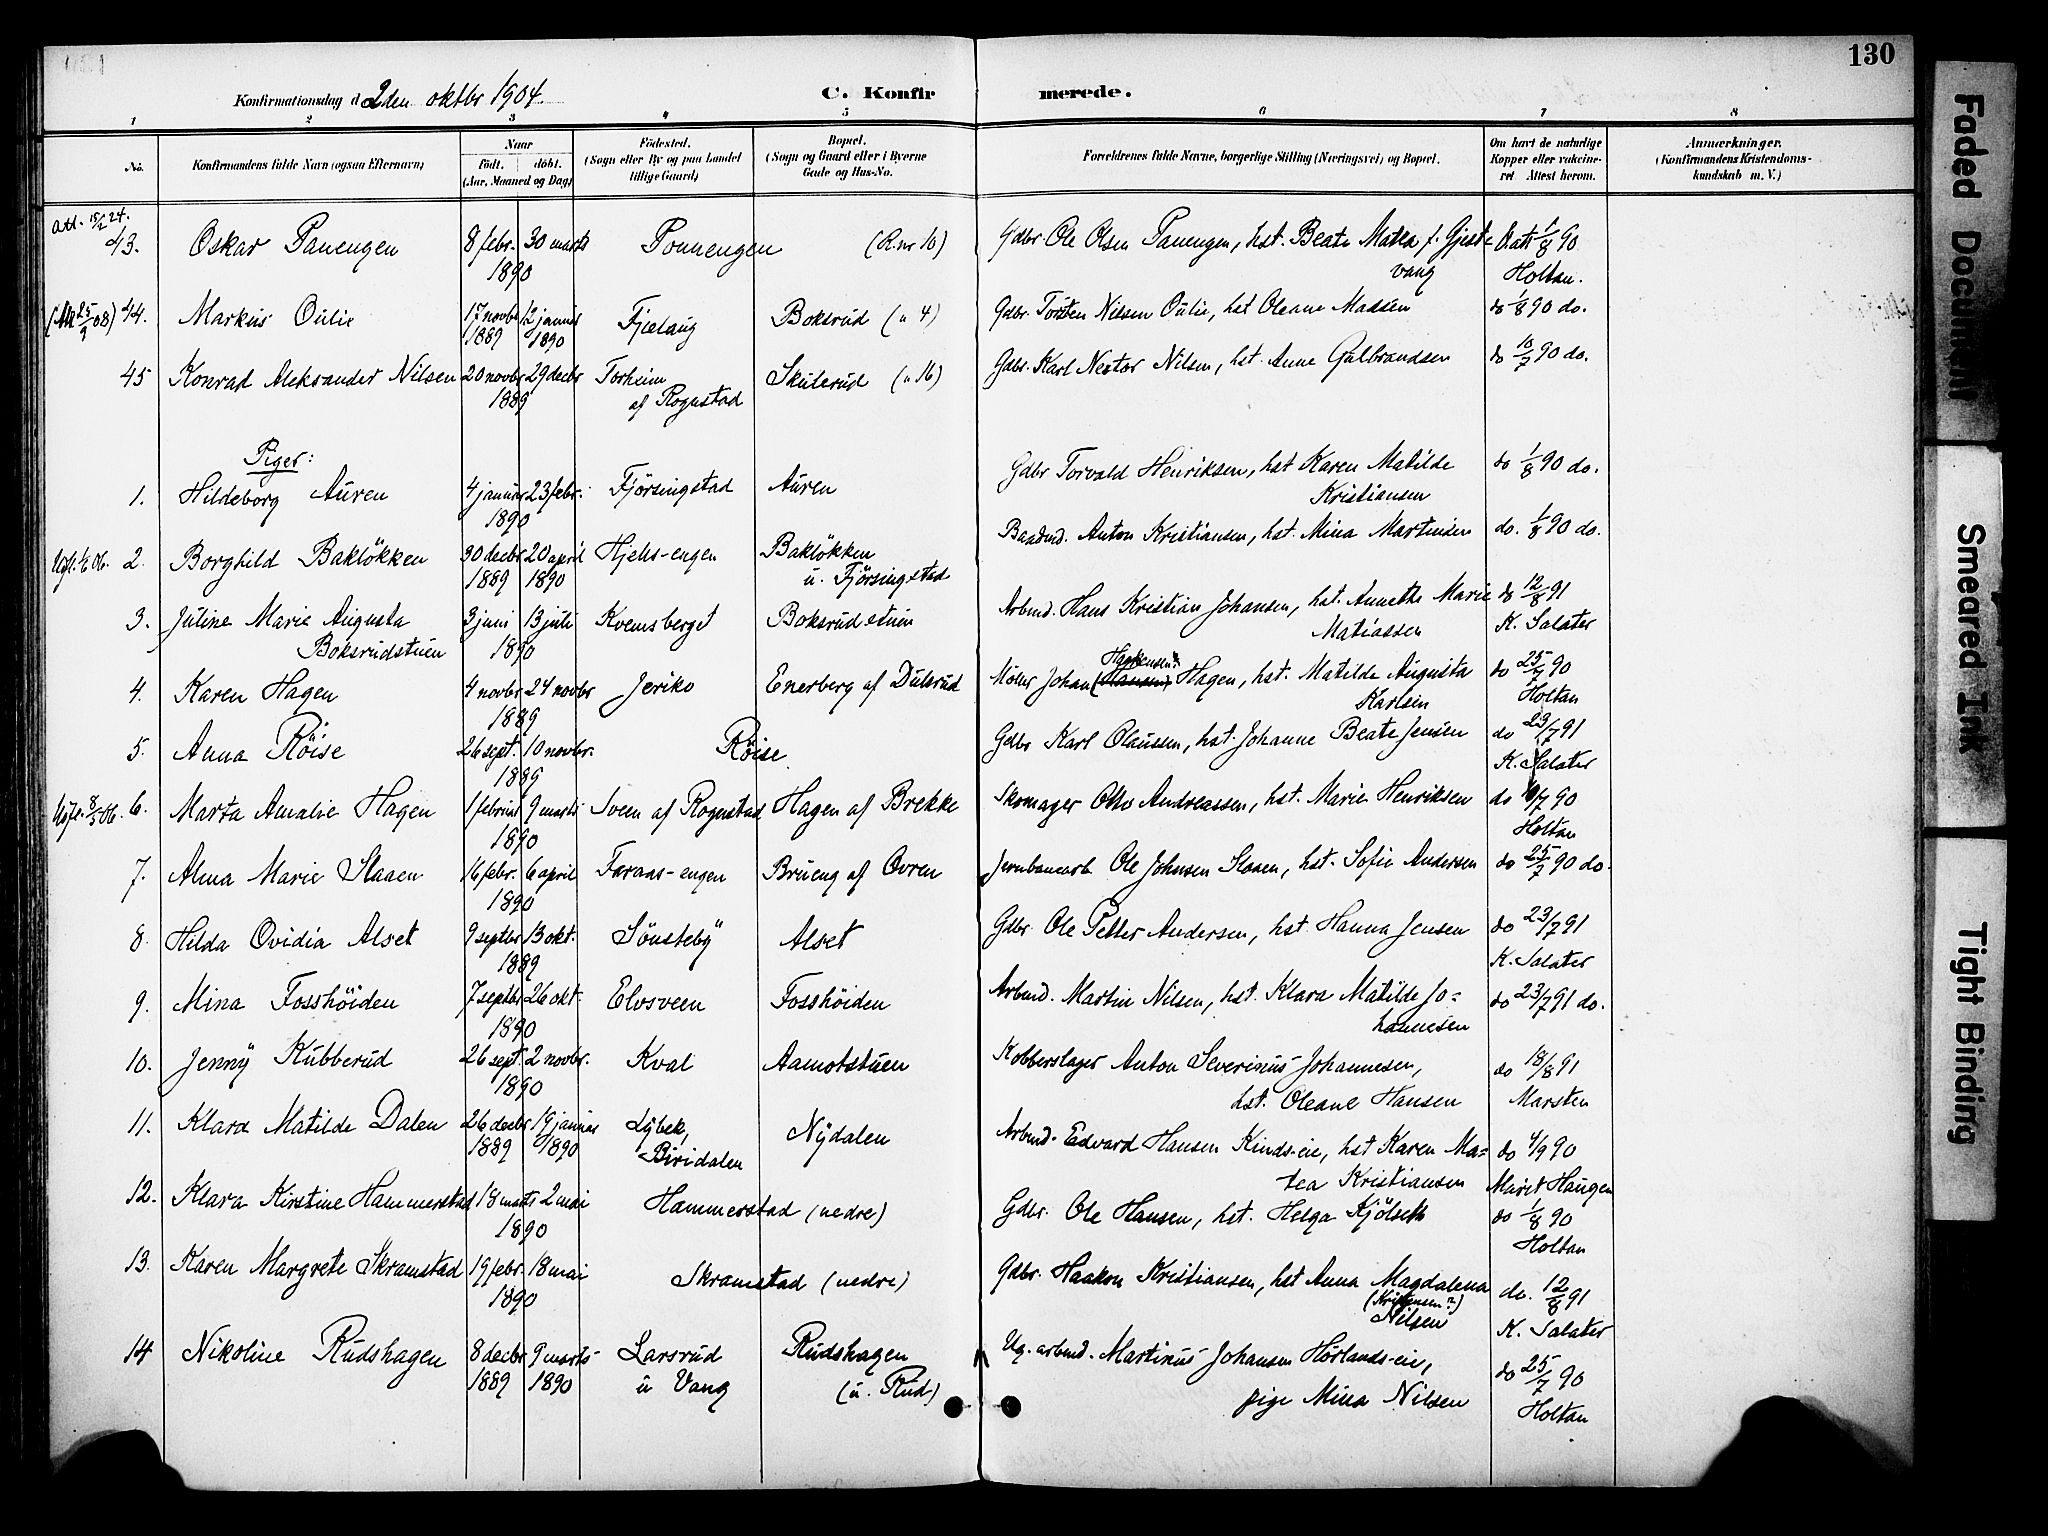 130
Konfirmationsdag d. 2den oktbr 1904.
C. Konfirmerede.
1 2 3 4 5 6 7 8
No.
Konfirmandens fulde Navn (ogsaa Efternavn)
Naar
født. døbt.
(Aar, Maaned og Dag)
Fødested.
(Sogn eller By og paa Landet
tillige Gaard)
Bopæl.
(Sogn og Gaard eller i Byerne
Gade og Hus-No.
Forældrenes fulde Navne, borgerlige Stilling (Næringsvei) og Bopæl.
Om havt de naturlige
Kopper eller vaccine-
ret Attest herom.
Anmærkninger.
(Konfirmandens Kristendoms-
kundskab m. V.)
Att. 15/2 24.
43. Oskar Panengen 8 febr. 30 marts Ponnengen (R.nr 10) Gdbr. Ole Olsen Panengen, hst. Beate Matea f. Gjest- Vatt 1/8 90
1890 vang Holtan.
(Att 25/9 08) 44. Markus Oulie 17 novbr 12 januar Fjælaug Boksrud (" 4) Gdbr. Torsten Nilsen Oulie, hst Oleane Madsen do 1/8 90 do.
1889 1890
45 Konrad Aleksander Nilsen 20 novbr 29 decbr Torheim Skulerud (" 16) Gdbr. Karl Nestor Nilsen, hst. Anne Gulbrandsen do 10/7 90 do.
1889 af Rognstad
Piger:
1. Hildeborg Auren 4 januar 23 febr. Fjörsingstad Auren Gdbr Torvald Henriksen, hst Karen Matilde do 1/8 90 do.
1890 Kristiansen
2. Borghild Baklökken 30 decbr 20 april Hjels-engen Baklökken Baadmd. Anton Kristiansen, hst. Mina Martinsen do. 1/8 90 do.
1889 1890 u. Fjörsingstad
3. Juline Marie Augusta 3 juni 13 juli Kvernsberget Boksrudstuen Arbmd. Hans Kristian Johansen, hst. Annette Marie do 12/8 91
Boksrudstuen 1890 Matiassen K. Salater
4. Karen Hagen 4 novbr 24 novbr Jeriko Enerberg af Dulsrud Möller Johan (Hansen) Haakensen? Hagen, hst. Matilde Augusta do 25/7 90
1889 Karlsen Holtan
5. Anna Röise 26 sept. 10 novbr. Röise Gdbr Karl Olaussen, hst. Johanne Beate Jensen do 29/7 91
1889 K. Salater
Utfl. 8/5 06. 6. Marta Amalie Hagen 1 februar 9 marts Sveen af Rognstad Hagen af Brekke Skomager Otto Andreassen, hst. Marie Henriksen do /7 90
1890 Holtan
7. Alma Marie Slaaen 16 febr. 6 april Faraas-engen Brueng af Ovren Jernbanearb Ole Johnsen Slaaen, hst. Sofie Andersen do 25/7 90 do.
1890
8. Hilda Ovidia Alset 9 septbr 13 okt. Sönsteby Alset Gdbr. Ole Petter Andersen, hst. Hanna Jensen do 23/7 91
1889 K. Salater
9. Mina Fosshöiden 7 septbr 26 okt. Elvsveen Fosshöiden Arbmd. Martin Nilsen, hst. Klara Matilde Jo= do 23/7 91 do.
1890 hannesen
10. Jenny Kubberud 26 sept. 2 novbr. Kval Aamotstuen Kobberslager Anton Severinus Johannesen, do 18/8 91
1890 hst. Oleane Hansen Marsten
11. Klara Matilde Dalen 26 decbr 19 januar Lybek, Nydalen Arbmd. Edvard Hansen Kinds-eie, hst Karen Ma= do 4/9 90
1889 1890 Biridalen tea Kristiansen Marit Haugen
12. Klara Kirstine Hammerstad 18 marts 2 mai Hammerstad (nedre) Gdbr. Ole Hansen, hst. Helga Kjölseth do 1/8 90
1890 Holtan
13. Karen Margrete Skramstad 19 febr. 18 mai Skramstad (nedre) Gdbr. Haakon Kristiansen, hst Anna Magdalena do. 12/8 91
1890 (Kristensen?) Nilsen K. Salater
14 Nikoline Rudshagen 8 decbr 9 marts Larsrud Rudshagen Ug. arbmd. Martinus Johansen Hörlands-eie, do 25/7 90
1889 1890 u Vang (u. Rud) pige Mina Nilsen Holtan
Faded Document
Smeared Ink
Tight Binding